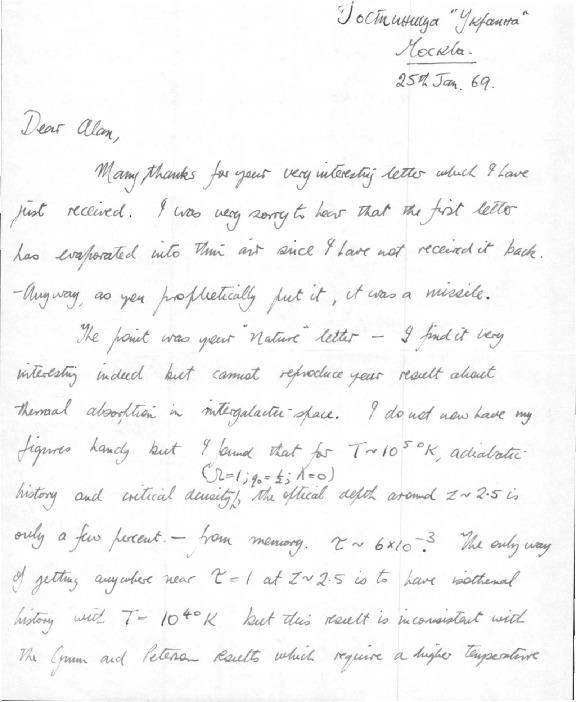 Гостиница "Украина"
Москва.
25th Jan. 69.
Dear Alan,
Many thanks for your very interesting letter which I have
just received. I was very sorry to hear that the first letter
has evaporated into thin air since I have not received it back.
-Anyway, as you prophetically put it, it was a missile.
The point was your "Nature" letter — I find it very
interesting indeed but cannot reproduce your result about
thermal absorption in intergalactic space. I do not now have my
figures handy but I found that for T~10⁵ °K, adiabatic
(Ω=1; q₀=½; Λ=0)
history and critical density, the optical depth around z~2.5 is
only a few percent. — from memory. τ ~ 6×10⁻³? The only way
of getting anywhere near τ=1 at z~2.5 is to have isothermal
history with T= 10⁴ °K but this result is inconsistent with
the Gunn and Peterson results which require a higher temperature